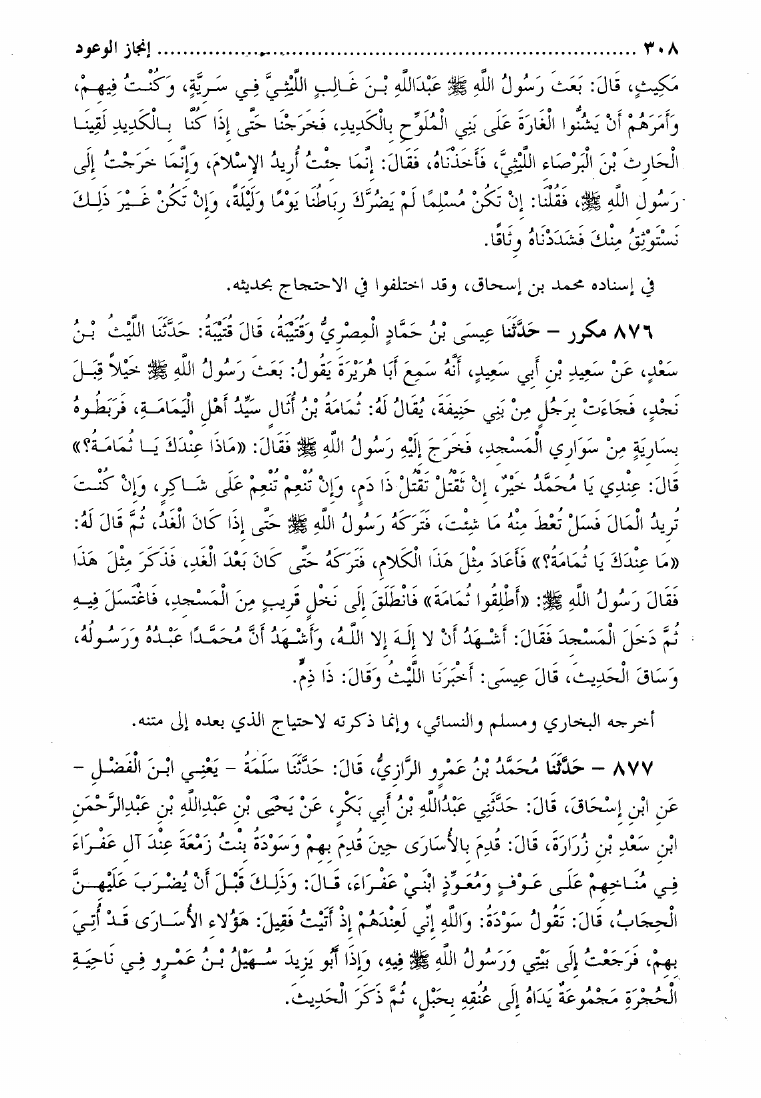 ٣٠٨ ........................................................................ إنجاز الوعود
مَكِيثٍ، قَالَ: بَعَثَ رَسُولُ اللَّهِ ﷺ عَبْدَاللَّهِ بْنَ غَالِبٍ اللَّيْثِيَّ فِي سَرِيَّةٍ، وَكُنْتُ فِيهِمْ،
وَأَمَرَهُمْ أَنْ يَشُنُّوا الْغَارَةَ عَلَى بَنِي الْمُلَوِّحِ بِالْكَدِيدِ، فَخَرَجْنَا حَتَّى إِذَا كُنَّا بِالْكَدِيدِ لَقِينَا
الْحَارِثَ بْنَ الْبَرْصَاءِ اللَّيْثِيَّ، فَأَخَذْنَاهُ، فَقَالَ: إِنَّمَا جِئْتُ أُرِيدُ الإِسْلامَ، وَإِنَّمَا خَرَجْتُ إِلَى
رَسُولِ اللَّهِ ﷺ، فَقُلْنَا: إِنْ تَكُنْ مُسْلِمًا لَمْ يَضُرَّكَ رِبَاطُنَا يَوْمًا وَلَيْلَةً، وَإِنْ تَكُنْ غَيْرَ ذَلِكَ
نَسْتَوْثِقُ مِنْكَ فَشَدَدْنَاهُ وِثَاقًا.
في إسناده محمد بن إسحاق، وقد اختلفوا في الاحتجاج بحديثه.
٨٧٦ مكرر – حَدَّثَنَا عِيسَى بْنُ حَمَّادٍ الْمِصْرِيُّ وَقُتَيْبَةُ، قَالَ قُتَيْبَةُ: حَدَّثَنَا اللَّيْثُ بْنُ
سَعْدٍ، عَنْ سَعِيدِ بْنِ أَبِي سَعِيدٍ، أَنَّهُ سَمِعَ أَبَا هُرَيْرَةَ يَقُولُ: بَعَثَ رَسُولُ اللَّهِ ﷺ خَيْلاً قِبَلَ
نَجْدٍ، فَجَاءَتْ بِرَجُلٍ مِنْ بَنِي حَنِيفَةَ، يُقَالُ لَهُ: ثُمَامَةُ بْنُ أُثَالٍ سَيِّدُ أَهْلِ الْيَمَامَةِ، فَرَبَطُوهُ
بِسَارِيَةٍ مِنْ سَوَارِي الْمَسْجِدِ، فَخَرَجَ إِلَيْهِ رَسُولُ اللَّهِ ﷺ فَقَالَ: «مَاذَا عِنْدَكَ يَا ثُمَامَةُ؟»
قَالَ: عِنْدِي يَا مُحَمَّدُ خَيْرٌ، إِنْ تَقْتُلْ تَقْتُلْ ذَا دَمٍ، وَإِنْ تُنْعِمْ تُنْعِمْ عَلَى شَاكِرٍ، وَإِنْ كُنْتَ
تُرِيدُ الْمَالَ فَسَلْ تُعْطَ مِنْهُ مَا شِئْتَ، فَتَرَكَهُ رَسُولُ اللَّهِ ﷺ حَتَّى إِذَا كَانَ الْغَدُ، ثُمَّ قَالَ لَهُ:
«مَا عِنْدَكَ يَا ثُمَامَةُ؟» فَأَعَادَ مِثْلَ هَذَا الْكَلامِ، فَتَرَكَهُ حَتَّى كَانَ بَعْدَ الْغَدِ، فَذَكَرَ مِثْلَ هَذَا
فَقَالَ رَسُولُ اللَّهِ ﷺ: «أَطْلِقُوا ثُمَامَةَ» فَانْطَلَقَ إِلَى نَخْلٍ قَرِيبٍ مِنَ الْمَسْجِدِ، فَاغْتَسَلَ فِيهِ
ثُمَّ دَخَلَ الْمَسْجِدَ فَقَالَ: أَشْهَدُ أَنْ لا إِلَهَ إِلا اللَّهُ، وَأَشْهَدُ أَنَّ مُحَمَّدًا عَبْدُهُ وَرَسُولُهُ،
وَسَاقَ الْحَدِيثَ، قَالَ عِيسَى: أَخْبَرَنَا اللَّيْثُ وَقَالَ: ذَا ذِمٍّ.
أخرجه البخاري ومسلم والنسائي، وإنما ذكرته لاحتياج الذي بعده إلى متنه.
٨٧٧ – حَدَّثَنَا مُحَمَّدُ بْنُ عَمْرٍو الرَّازِيُّ، قَالَ: حَدَّثَنَا سَلَمَةُ – يَعْنِي ابْنَ الْفَضْلِ –
عَنِ ابْنِ إِسْحَاقَ، قَالَ: حَدَّثَنِي عَبْدُاللَّهِ بْنُ أَبِي بَكْرٍ، عَنْ يَحْيَى بْنِ عَبْدِاللَّهِ بْنِ عَبْدِالرَّحْمَنِ
ابْنِ سَعْدِ بْنِ زُرَارَةَ، قَالَ: قُدِمَ بِالأُسَارَى حِينَ قُدِمَ بِهِمْ وَسَوْدَةُ بِنْتُ زَمْعَةَ عِنْدَ آلِ عَفْرَاءَ
فِي مُنَاخِهِمْ عَلَى عَوْفٍ وَمُعَوِّذٍ ابْنَيْ عَفْرَاءَ، قَالَ: وَذَلِكَ قَبْلَ أَنْ يُضْرَبَ عَلَيْهِنَّ
الْحِجَابُ، قَالَ: تَقُولُ سَوْدَةُ: وَاللَّهِ إِنِّي لَعِنْدَهُمْ إِذْ أَتَيْتُ فَقِيلَ: هَؤُلاءِ الأُسَارَى قَدْ أُتِيَ
بِهِمْ، فَرَجَعْتُ إِلَى بَيْتِي وَرَسُولُ اللَّهِ ﷺ فِيهِ، وَإِذَا أَبُو يَزِيدَ سُهَيْلُ بْنُ عَمْرٍو فِي نَاحِيَةِ
الْحُجْرَةِ مَجْمُوعَةٌ يَدَاهُ إِلَى عُنُقِهِ بِحَبْلٍ، ثُمَّ ذَكَرَ الْحَدِيثَ.